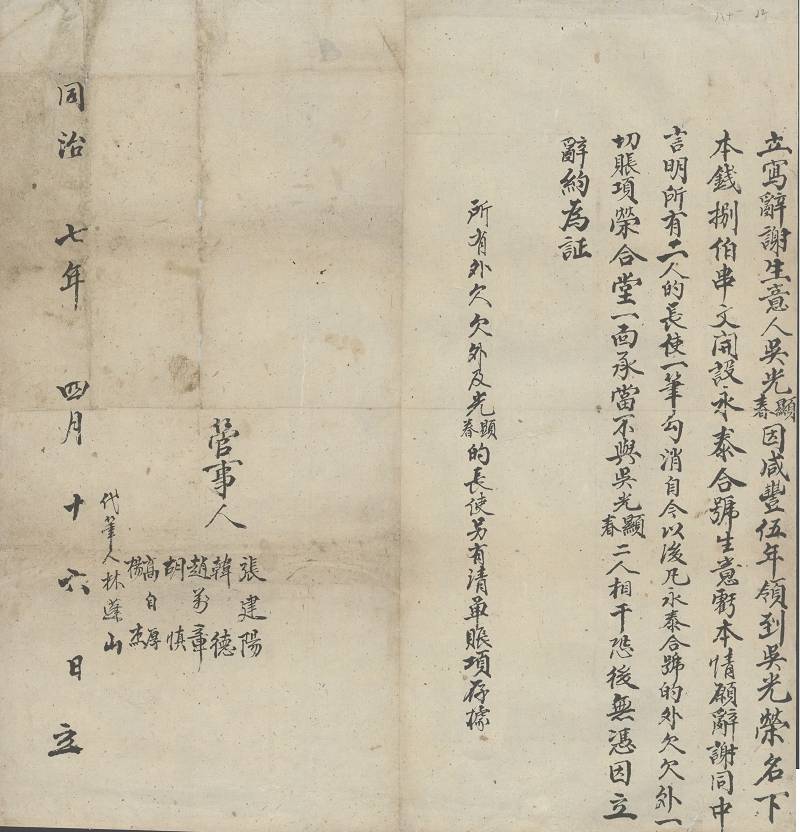 立寫辭謝生意人吳光顯春因咸豐伍年領到吳光榮名下
本錢捌伯串文開設永泰合號生意虧本情願辭謝同中
言明所有二人的長使一筆勾消自今以後凡永泰合號的外欠欠外一
切賬項榮合堂一面承當不與吳光顯春二人相干恐後無憑因立
辭約為証
所有外欠欠外及光顯春的長使另有清單賬項存據
管事人
張建陽
韓德
趙萬章
胡慎
高自厚
楊杰
代筆人林蓬山
同治七年四月十六日立